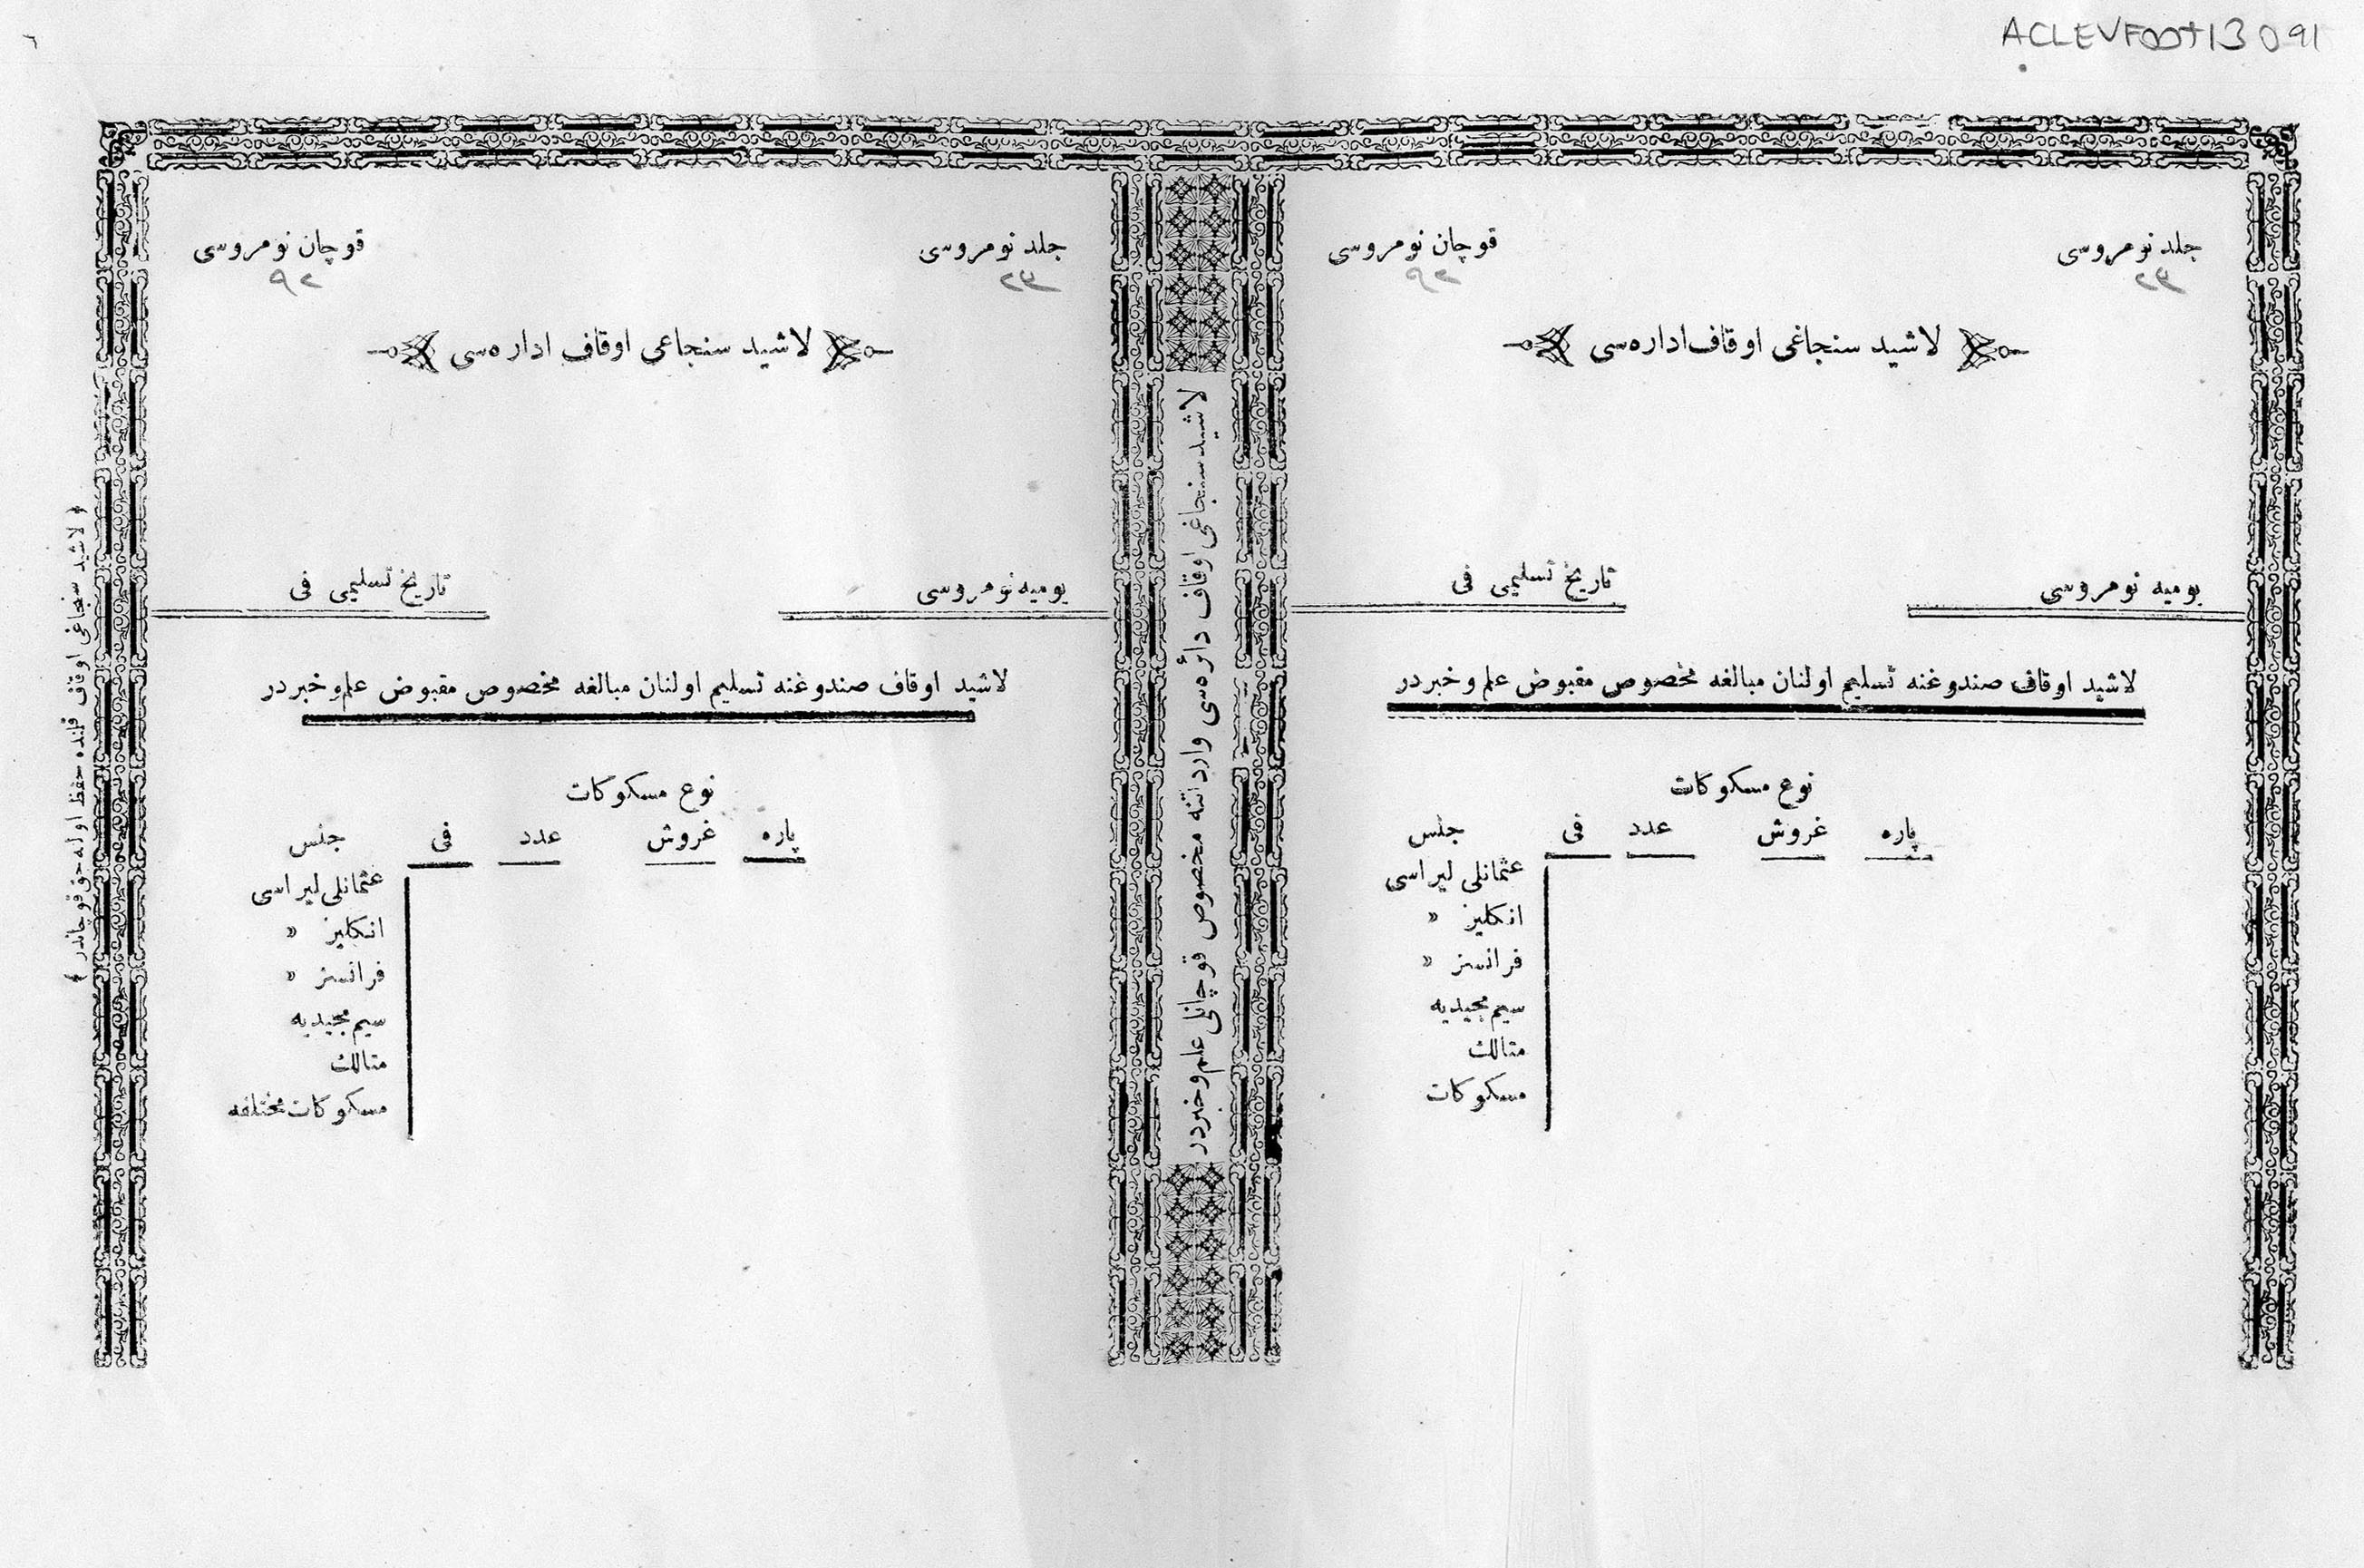 ACLEVF00+13 091
جلد نومروسی
٢٣
قوچان نومروسی
٩٢
لاشید سنجاغی اوقاف اداره‌سی
یومیه نومروسی
تاریخ تسلیمی فی
لاشید اوقاف صندوغنه تسلیم اولنان مبالغه مخصوص مقبوض علم و خبردر
نوع مسکوکات
پاره غروش عدد فی جنس
عثمانلی لیراسی
انکلیز »
فرانسز »
سیم مجیدیه
متالك
مسکوکات
لاشید سنجاغی اوقاف دائره‌سی وارداتنه مخصوص قوچانلی علم و خبردر
جلد نومروسی
٢٣
قوچان نومروسی
٩٢
لاشید سنجاغی اوقاف اداره‌سی
یومیه نومروسی
تاریخ تسلیمی فی
لاشید اوقاف صندوغنه تسلیم اولنان مبالغه مخصوص مقبوض علم و خبردر
نوع مسکوکات
پاره غروش عدد فی جنس
عثمانلی لیراسی
انکلیز »
فرانسز »
سیم مجیدیه
متالك
مسکوکات مختلفه
﴿ لاشید سنجاغی اوقاف قلمنده حفظ اوله‌جق قوچاندر ﴾